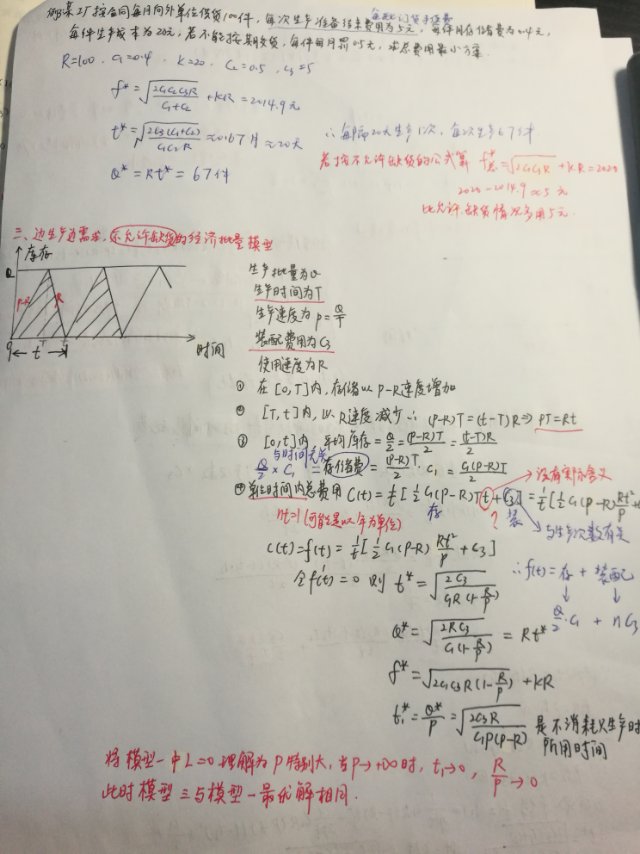 例:某工厂按合同每月向外单位供货100件,每次生产准备结束费用为5元,每件月存储费为0.4元,
每次订货手续费
每件生产成本为20元,若不能按期交货,每件每月罚0.5元,求总费用最小方案.
R=100 . C₁=0.4 . K=20 . C₂=0.5 . C₃=5
f*=√(2C₁C₂C₃R/(C₁+C₂)) +KR = 2014.9元
t*=√(2C₃(C₁+C₂)/(C₁C₂R)) ≈0.67月≈20天
∴每隔20天生产1次,每次生产67件
Q*=Rt*=67件
若按不允许缺货的公式算 f*=√(2C₁C₃R)+KR=2020
2020-2014.9≈5元
比允许缺货情况多用5元.
三、边生产边需求,不允许缺货的经济批量模型
库存
Q
P-R R
0 t T
时间
生产批量为Q
生产时间为T
生产速度为P=Q/T
装配费用为C₃
使用速度为R
① 在[0,T]内,存储以P-R速度增加
② [T,t]内,以R速度减少∴(P-R)T=(t-T)R⇒PT=Rt
③ [0,t]内 平均库存=Q/2=(P-R)T/2=(t-T)R/2
与时间无关
Q/2×C₁=存储费=(P-R)T/2·C₁=C₁(P-R)T/2
没有实际含义
④ 单位时间内总费用 C(t)=1/t[1/2C₁(P-R)Tt+C₃]=1/t[1/2C₁(P-R)Rt²/P+
存 ? 装
与生产次数有关
nt=1(可能是以年为单位)
C(t)=f(t)=1/t[1/2C₁(P-R)Rt²/P+C₃]
∴f(t)=存+装配
Q/2·C₁+nC₃
令f'(t)=0 则 t*=√(2C₃/(C₁R(1-R/P)))
Q*=√(2RC₃/(C₁(1-R/P)))=Rt*
f*=√(2C₁C₃R(1-R/P))+KR
t₁*=Q*/P=√(2C₃R/(C₁P(P-R))) 是不消耗只生产时
所用时间
将模型一中L=0理解为P特别大,当P→+∞时,t₁→0,R/P→0
此时模型三与模型一最优解相同.